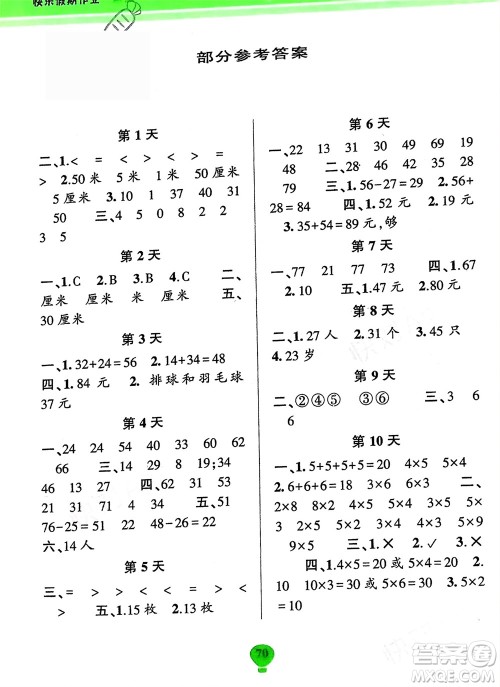 快乐假期作业
部分参考答案
第 1 天
二、1.< = > < > < =
> 2.50 米 5 米 1 米 50 厘米
5 厘米 3.10 1 17 50
50 三、4 5 0 8 2 2
第 2 天
一、1.C 2.B 3.C 二、
厘米 米 厘米 米 米
厘米 米 厘米 五、
30 厘米
第 3 天
一、1.32+24=56 2.18
四、1.84 元 2.排球和羽毛球
3.37 元
第 4 天
一、24 24 54 70 33 60 62
66 三、23 14 19;34
46 13 27 四、62 51 52
21 31 71 4 五、51-8=43
76-25=51 2+18-8=12
六、14 人
第 5 天
三、= > > < < = > <
> 五、1.15 枚 2.13 枚
第 6 天
一、22 13 31 30 49 16
48 二、28 46 28 28
79 三、1.86 2.56+
28=84 四、1.52 元 2.59 元
3.35+54=89 元,够
第 7 天
一、77 21 77 73 四、1.67
2.10 五、1.49 元 2.80 元
第 8 天
二、1.27 人 2.31 个 3.45 只
4.23 岁
第 9 天
二、②④⑤ ②④⑤ 三、3 6
6
第 10 天
一、1.5+5+5+5=20 4×5 5×4
2.6+6+6=18 3×6 6×3 二、
2×8 2×5 4×5 5×5 5×9
3×5 三、1.✕ 2.✓ 3.✕
四、1.4×5=20 或 5×4=20 2.
10 10 10 五、2×5=10 或 5×2
=10
70
答案圈
MXQE.COM